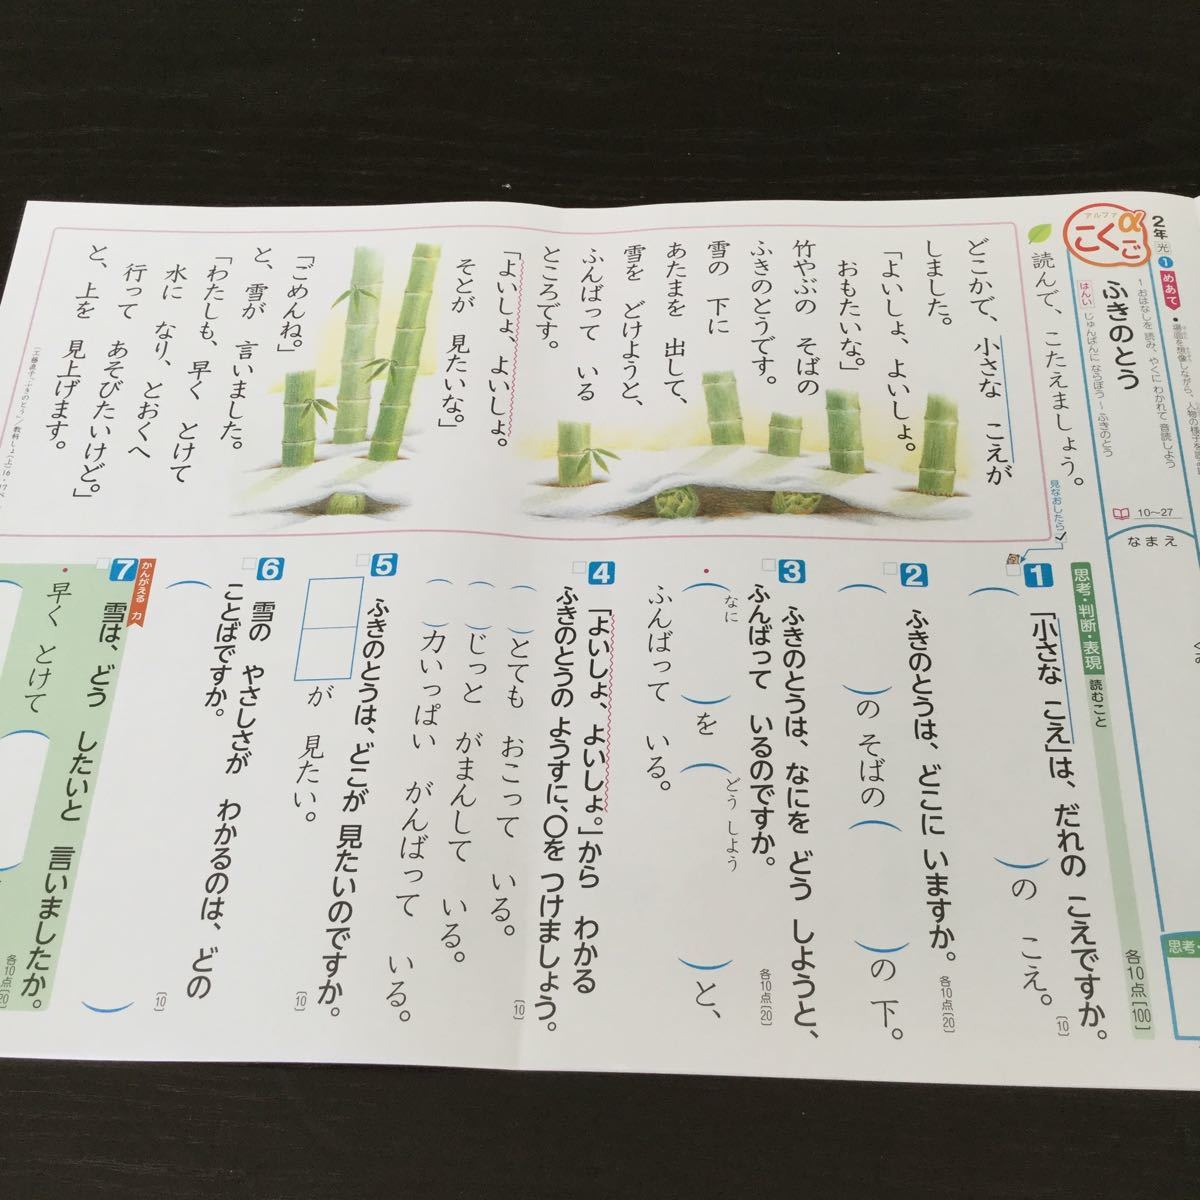 2年
光
1
アルファ
α
こくご
めあて
1 おはなしを 読み、やくに わかれて 音読しよう
はんい
じゅんばんに ならぼう〜ふきのとう
ふきのとう
10〜27
なまえ
読んで、こたえましょう。
見なおしたら✓
どこかで、小さな こえが
しました。
「よいしょ、よいしょ。
おもたいな。」
竹やぶの そばの
ふきのとうです。
雪の 下に
あたまを 出して、
雪を どけようと、
ふんばって いる
ところです。
「よいしょ、よいしょ。
そとが 見たいな。」
「ごめんね。」
と、雪が 言いました。
「わたしも、早く とけて
水に なり、とおくへ
行って あそびたいけど。」
と、上を 見上げます。
思考・判断・表現
読むこと
各10点〔100〕
1
「小さな こえ」は、だれの こえですか。
〔10〕
( )の こえ。
2
ふきのとうは、どこに いますか。
各10点〔20〕
( )の そばの( )の 下。
3
ふきのとうは、なにを どう しようと、
ふんばって いるのですか。
各10点〔20〕
なに
どう しよう
( )を( )と、
ふんばって いる。
4
「よいしょ、よいしょ。」から わかる
ふきのとうの ようすに、〇を つけましょう。
〔10〕
( )とても おこって いる。
( )じっと がまんして いる。
( )力いっぱい がんばって いる。
5
ふきのとうは、どこが 見たいのですか。
〔10〕
が 見たい。
6
雪の やさしさが わかるのは、どの
ことばですか。
〔10〕
( )
かんがえる 力
7
雪は、どう したいと 言いましたか。
各10点〔20〕
早く とけて